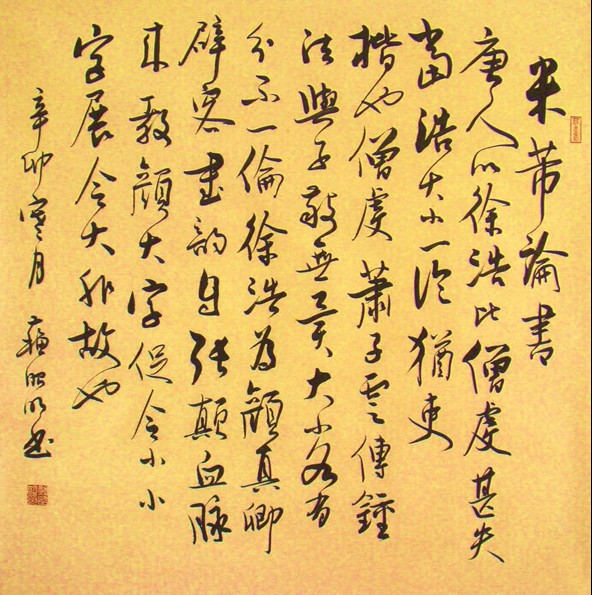 米芾論書
唐人以徐浩比僧虔甚失
當浩大小一倫猶吏
楷也僧虔蕭子雲傳鍾
法與子敬無異大小各有
分不一倫徐浩為顏真卿
辟客書韻自張顛血脈
來教顏大字促令小小
字展令大非故也
辛卯寒月